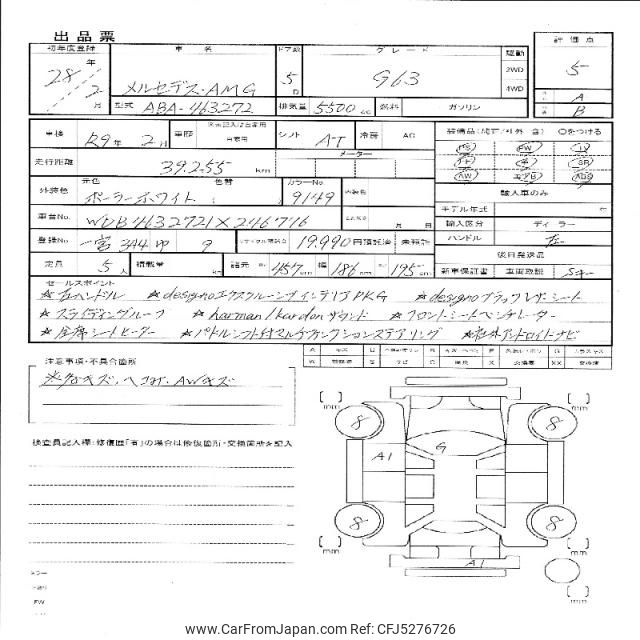 出品票
初年度登録 車名 ドア数 グレード 駆動 評価点
28年 2月 メルセデス・AMG 5D G63 2WD 4WD 5
型式 ABA-463272 排気量 5500cc 燃料 ガソリン A B
車検 R9年 2月 車歴 自家用 シフト AT 冷房 AC
装備品(純正/社外 含) ○をつける
PS PW
SR
AW エアB ABS
走行距離 メーター 39,255 km
輸入車のみ
外装色 元色 色替 カラーNo.
ポーラーホワイト 9149
モデル年式
車台No. WDB4632721X246716 月 日
輸入区分 ディーラー
登録No. 一宮 344 ゆ 9 リサイクル預託金 19.990 円預託済 未預託
ハンドル 左
後日発送品
定員 5人 積載量 諸元 長 457cm 幅 186cm 高 195cm
新車保証書 車両取説
セールスポイント
☆左ハンドル ☆designoエクスクルーシブインテリアPKG ☆designoブラックレザーシート
☆スライディングルーフ ☆harman/kardonサウンド ☆フロントシートベンチレーター
☆全席シートヒーター ☆パドルシフト付マルチファンクションステアリング ☆社外アンドロイドナビ
注意事項・不具合箇所
AWキズ
検査員記入欄:修復歴「有」の場合は修復箇所・交換箇所を記入
mm mm
8 8
A1 G
8 8
mm mm
A1
mm
CarFromJapan.com Ref: CFJ5276726